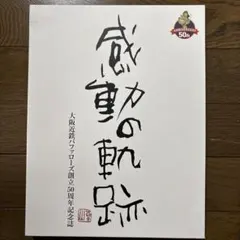 感動の軌跡
大阪近鉄バファローズ創立50周年記念誌
50th